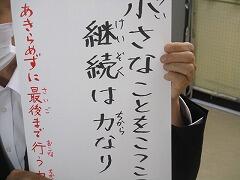 小さなことをここ
継続は力なり
けいぞく
ちから
あきらめずに最後まで行う力
さいご
おこな